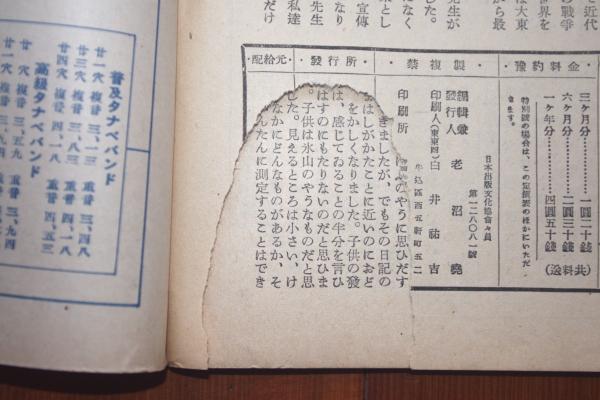 と近代
の戰爭
世界を
は大東
から最
先生が
した。
になく
集とし
宣傳
なり
先生
私達
だけ
豫約料金
三ケ月分………一圓二十錢
六ケ月分………二圓三十錢
一ケ年分………四圓五十錢
(送料共)
特別號の場合は、この定價表のほかにいただ
きます。
禁複製
日本出版文化協會々員
第一二八〇八一號
編輯兼
發行人
老沼堯
印刷人(東東四)白井祐吉
牛込區西五軒町五二
印刷所
發行所
配給元
のやうに思ひだす
きましたが、でもその日記の
はしがかたことに近いのにおど
をかしくなりました。子供の發
は、感じてゐることの半分を言ひ
はすのにもたりないのだと思ひま
。子供は氷山のやうなものだと思
した。見えるところは小さい、け
なかにどんなものがあるか、そ
んたんに測定することはでき
普及タナベバンド
廿一穴 複音 三、一三 重音 三、四八
廿三穴 複音 三、八三 重音 四、一八
廿四穴 複音 四、一八 重音 四、五三
高級タナベバンド
複音 三、五九 重音 三、九四